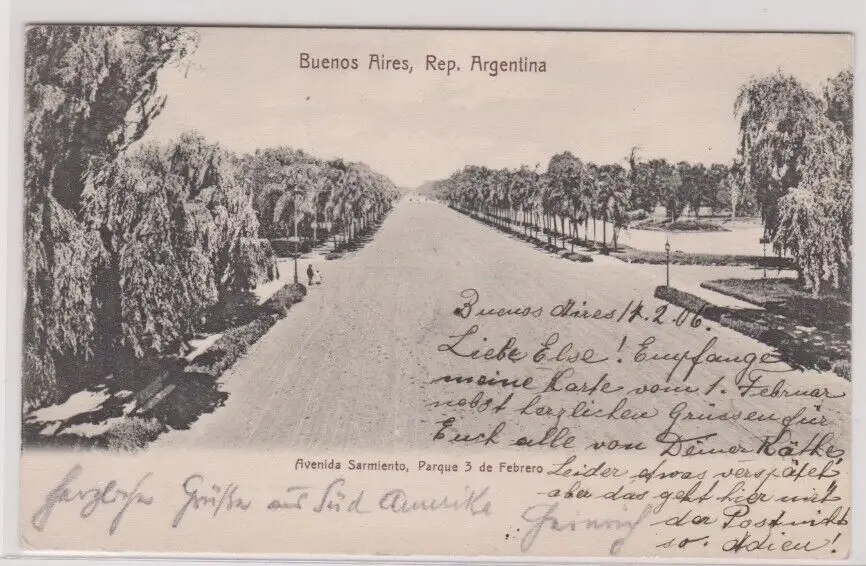 Buenos Aires, Rep. Argentina
Buenos Aires 17.2.06.
Liebe Else! Empfange
meine Karte vom 1. Februar
nebst herzlichen Grüssen für
Euch alle von Deiner Käthe
Avenida Sarmiento, Parque 3 de Febrero
Leider etwas verspätet
aber das geht hier mit
der Post nicht
so. Adieu!
Herzliche Grüße aus Süd Amerika
Heinrich